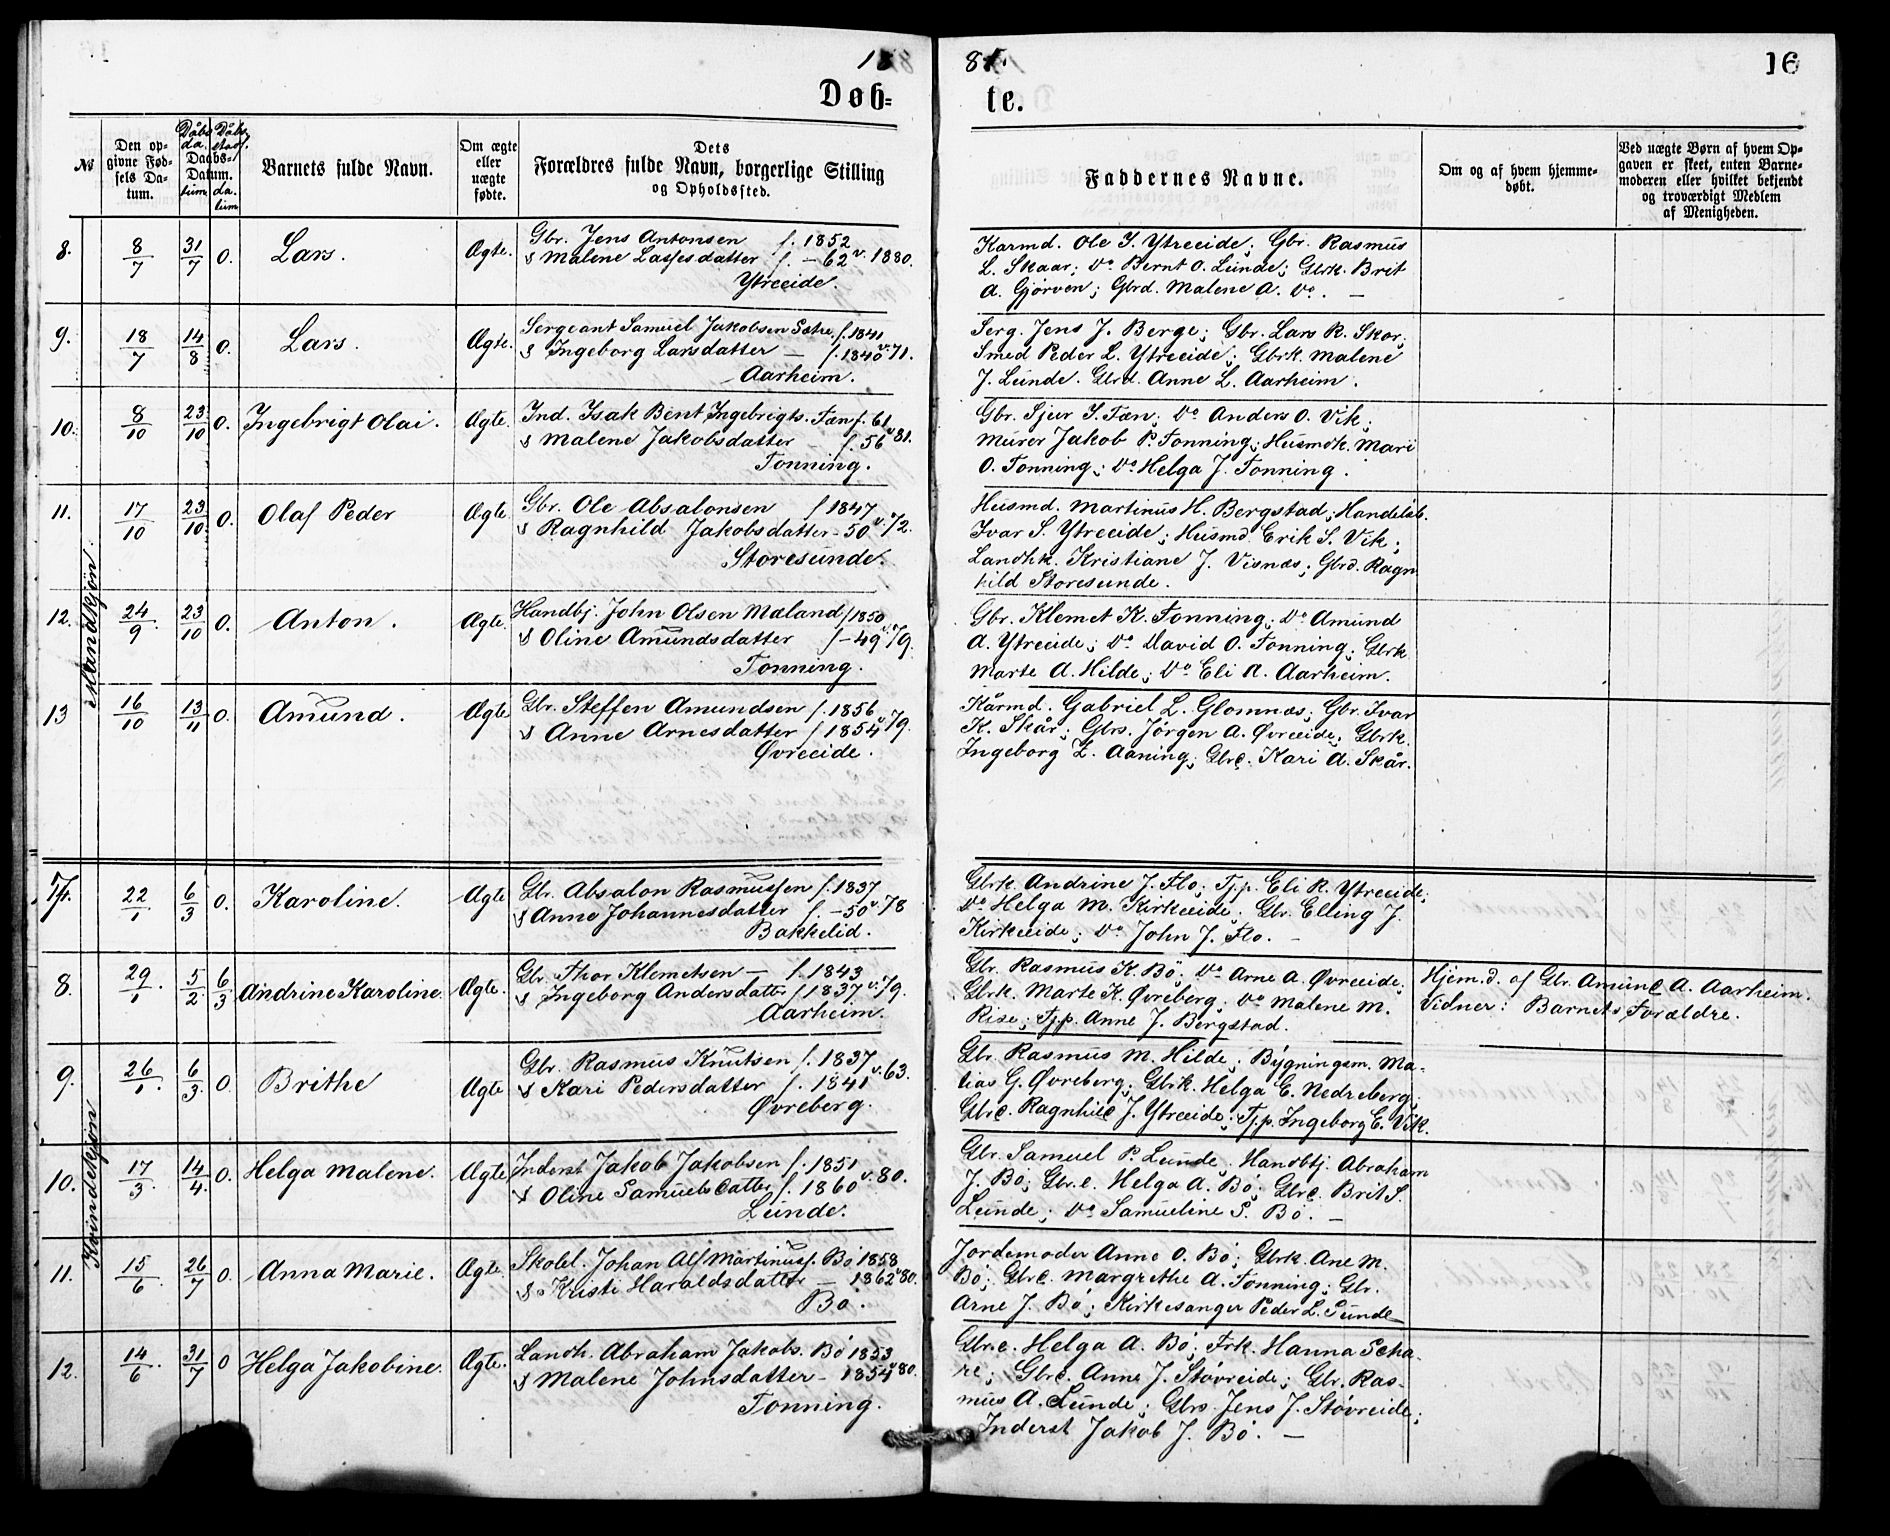 1881.
16
Døb=
te.
№
Den op-
givne Fød-
sels Da-
tum.
Daabs-
Datum.
Barnets fulde Navn.
Om ægte
eller
uægte
fødte.
Dets
Forældres fulde Navn, borgerlige Stilling
og Opholdssted.
Faddernes Navne.
Om og af hvem hjemme-
døbt.
Ved uægte Børn af hvem Op-
gaven er skeet, enten Barne-
moderen eller hvilket bekjendt
og troværdigt Medlem
af Menigheden.
Mandkjøn.
8. 8/7 31/7 0. Lars. Ægte.
Gbr. Jens Antonsen f. 1852
& Malene Lassesdatter f. – 62 v. 1880.
Ytreeide.
Karmd. Ole I. Ytreeide; Gbr. Rasmus
L. Skaar; Do Bernt O. Lunde; Gbrk. Brit
A. Gjørven; Gbrd. Malene A. Do. —
9. 18/7 14/8 0. Lars. Ægte.
Sergeant Samuel Jakobsen Sætre f. 1841
& Ingeborg Larsdatter — f. 1840 v. 71.
Aarheim.
Serg. Jens J. Berge; Gbr. Lars R. Skor;
Smed Peder L. Ytreeide; Gbrk. Malene
J. Lunde. Gbrd. Anne L. Aarheim.
10. 8/10 23/10 0. Ingebrigt Olai. Ægte.
Ind. Isak Bent Ingebrigts. Tæn f. 61
& Malene Jakobsdatter – f. 56 v 81.
Tonning.
Gbr. Sjur I. Tæn; Do Anders O. Vik;
Murer Jakob P. Tonning; Husmdk. Mari
O. Tonning; Do Helga J. Tonning.
11. 17/10 23/10 0. Olaf Peder Ægte
Gbr. Ole Absalonsen f 1847
& Ragnhild Jakobsdatter – 50 v. 72.
Storesunde.
Husmd. Martinus H. Bergstad; Handelsb.
Ivar S. Ytreeide; Husmd. Erik S. Vik;
Landhk. Kristiane J. Visnæs; Gbrd. Ragn
hild Storesunde.
12. 24/9 23/10 0. Anton. Ægte
Handbj. John Olsen Mæland f 1850
& Oline Amundsdatter f – 49 v. 79.
Tonning.
Gbr. Klemet K. Tonning; Do Amund
A. Ytreeide; Do David O. Tonning; Gbrk
Marte A. Hilde; Do Eli A. Aarheim.
13 16/10 13/11 0. Amund. Ægte
Gbr. Steffen Amundsen f. 1856
& Anne Arnesdatter f 1854 v. 79.
Øvreeide.
Kårmd. Gabriel L. Glomnæs; Gbr. Ivar
K. Skår; Gbrs. Jørgen A. Øvreeide; Gbrk.
Ingeborg E. Aaning; Gbrd. Kari A. Skår.
Kvindekjøn
7. 22/1 6/3 0. Karoline. Ægte
Gbr. Absalon Rasmussen f. 1837
& Anne Johannesdatter f. – 50 v. 78
Bakkelid.
Gbrk. Andrine J. Flo; Tjp. Eli R. Ytreeide;
Do Helga M. Kirkeeide; Gbr. Elling J.
Kirkeeide; Do John J. Flo. —
8. 29/1. 5/2 6/3 Andrine Karoline. Ægte.
Gbr. Thor Klemetsen — f. 1843
& Ingeborg Andersdatter f 1837 v. 79.
Aarheim.
Gbr. Rasmus K. Bö; Do Arne A. Øvreeide;
Gbrk. Marte K. Øvreberg; Do Malene M.
Rise; Tjp. Anne J. Bergstad.
Hjem.d. af Gbr. Amund A. Aarheim.
Vidner: Barnets Forældre.
9. 26/1. 6/3. 0. Brithe Ægte
Gbr. Rasmus Knutsen f. 1837
& Kari Pedersdatter f. 1841 v. 63.
Øvreberg.
Gbr. Rasmus M. Hilde; Bygningsm. Ma-
tias G. Øvreberg; Gbrk. Helga E. Nedreberg;
Gbrd. Ragnhild J. Ytreeide; Tjp. Ingeborg E. Vik.
10. 17/3. 14/4. 0. Helga Malene. Ægte
Inderst Jakob Jakobsen f. 1851
& Oline Samuelsdatter f. 1860 v. 80.
Lunde.
Gbr. Samuel P. Lunde; Handbtj. Abraham
J. Bö; Gbr.d. Helga A. Bö; Gbrd. Brit S.
Lunde; Do Samueline S. Bö. —
11. 15/6 26/7 0. Anna Marie. Ægte
Skolel. Johan Alf Martinuss. Bö 1858
& Kristi Haraldsdatter — 1862 v 80.
Bö.
Jordemoder Anne O. Bö; Gbrk. Ane M.
Bö; Gbrd. Margrethe A. Tonning; Gbr.
Arne J. Bö; Kirkesanger Peder L. Sunde
12. 14/6. 31/7 0 Helga Jakobine. Ægte.
Landh. Abraham Jakobs. Bö 1853
& Malene Johnsdatter – 1854 v 80.
Tonning.
Gbr.d. Helga A. Bö; Frk. Hanna Scha-
re; Gbrd. Anne J. Støvreide; Gbr. Ras-
mus A. Lunde; Gbrs. Jens J. Støvreide;
Inderst Jakob J. Bö. —